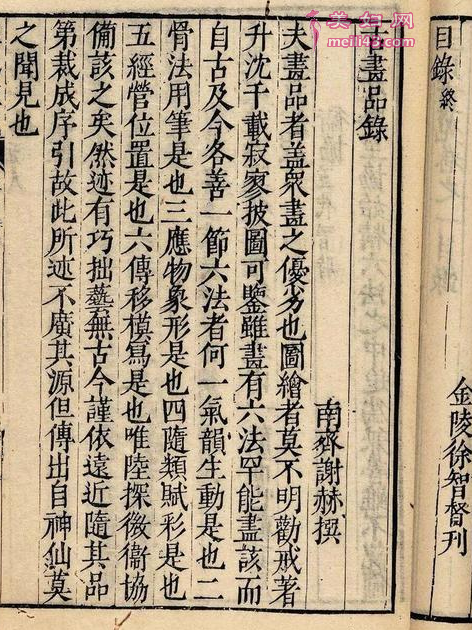 美妇网
meili43.com
目錄終
金陵徐智督刊
畫品錄
南齊謝赫撰
夫畫品者蓋衆畫之優劣也圖繪者莫不明勸戒著
升沈千載寂寥披圖可鑒雖畫有六法罕能盡該而
自古及今各善一節六法者何一氣韻生動是也二
骨法用筆是也三應物象形是也四隨類賦彩是也
五經營位置是也六傳移模寫是也唯陸探微衞協
備該之矣然迹有巧拙藝無古今謹依遠近隨其品
第裁成序引故此所迹不廣其源但傳出自神仙莫
之聞見也